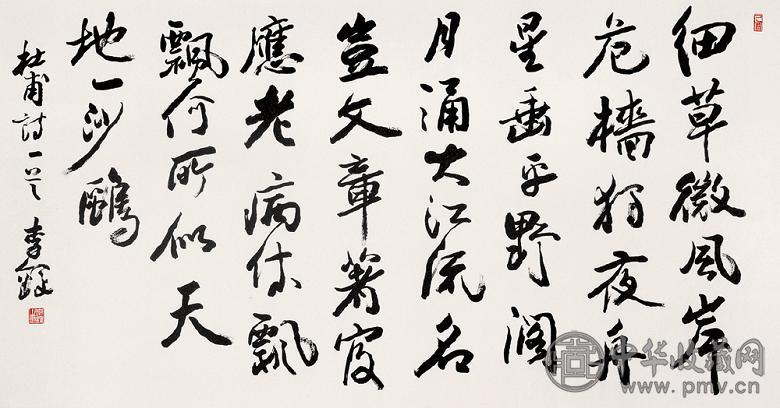 細草微風岸
危檣独夜舟
星垂平野闊
月涌大江流名
豈文章著官
應老病休飄
飄何所似天
地一沙鷗
杜甫詩一首 李鐸
中华收藏网
www.pmv.cn